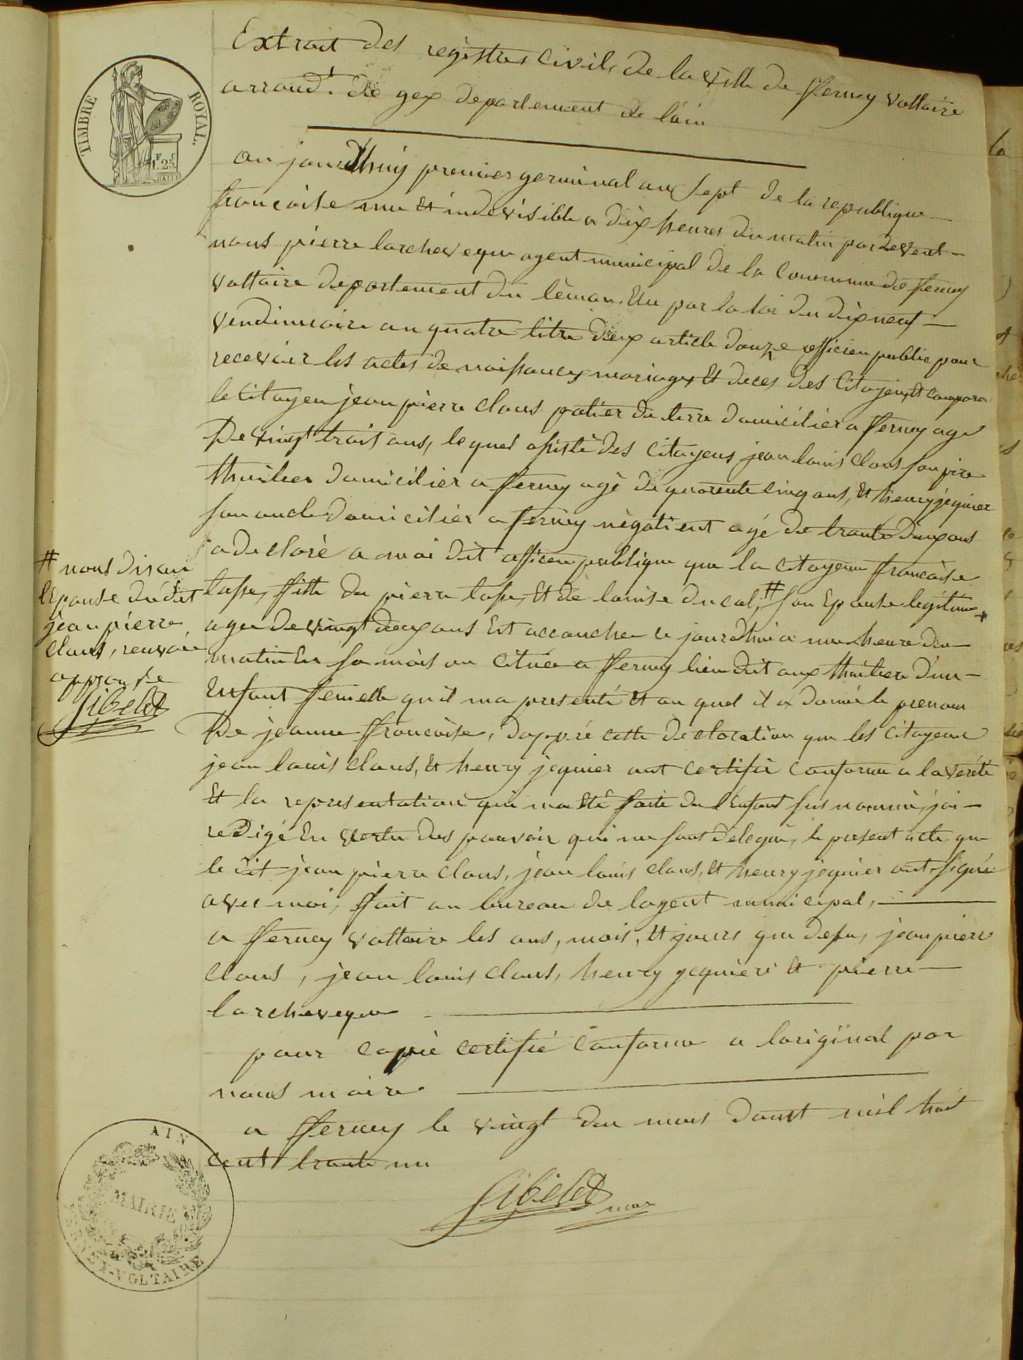 Extrait des registres civils de la ville de fferney voltaire
arrond.t de gex departement de l'ain
TIMBRE ROYAL
au jourdhuy premier germinal an sept de la republique
francoise une et indevisible a dix heures du matin pardevent
nous pierre larcheveque agent municipal de la Commune de fferney
voltaire departement du léman, Elu par la loi du dixneuf
vendimiaire an quatre titre deux article douze officier public pour
recevoir les actes de naissances mariages et deces des Citoyens, et comparu
le Citoyen jean pierre claus potier de terre domicilier a fferney age
De vingt trois ans, lequel assisté des Citoyens jean louis claus son pere
thuilier domicilier a fferney agé de quarente cinq ans, et henry jequier
son oncle domicilier a fferney négotient agé de trante deux ans
a declaré a moi dit officier publique que la citoyenne francoise
fille de pierre et de louise ducal, # son Epouse legitime
agee de vingt deux ans Est accouchee ce jourdhui a une heure du
matin En sa maison citué a fferney lieu dit aux thuiliere d'un
Enfant femelle qu'il ma presenté et au quel il a donné le prenom
De jeanne francoise, dapprè cette declaration que les citoyens
jean louis claus, et henry jequier ont certifié conforme a la verité
et la representation qui ma été faite de l'Enfant sus nommé, j'ai
redigé En vertu des pouvoir qui me sont delegué, le present acte que
le dit jean pierre claus, jean louis claus, et henry jequier ont signée
avec moi, ffait au bureau de lagent municipal,
a fferney voltaire les ans, mois, et jours que desu, jean pierre
claus, jean louis claus, henry jequier et pierre
larcheveque
pour copie certifié conforme a l'original par
nous maire
a fferney le vingt du mois daout mil huit
cent trante un
Gibelot
# nous disant
l'Epouse dudit
jean pierre
claus, renvoi
approuvé
Gibelot
AIN
MAIRIE
FERNEY-VOLTAIRE